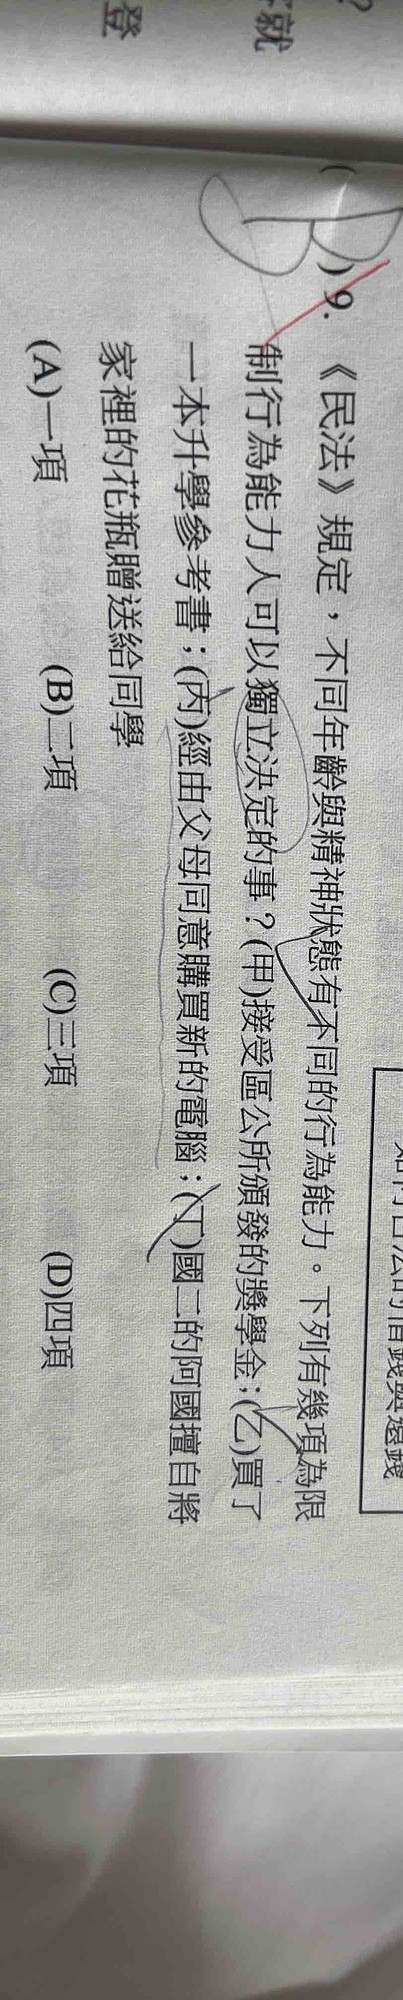 如何合法的借錢與還錢
( B ) 9. 《民法》規定，不同年齡與精神狀態有不同的行為能力。下列有幾項為限
制行為能力人可以獨立決定的事？(甲)接受區公所頒發的獎學金；(乙)買了
一本升學參考書；(丙)經由父母同意購買新的電腦；(丁)國二的阿國擅自將
家裡的花瓶贈送給同學
(A)一項 (B)二項 (C)三項 (D)四項
?
就
登